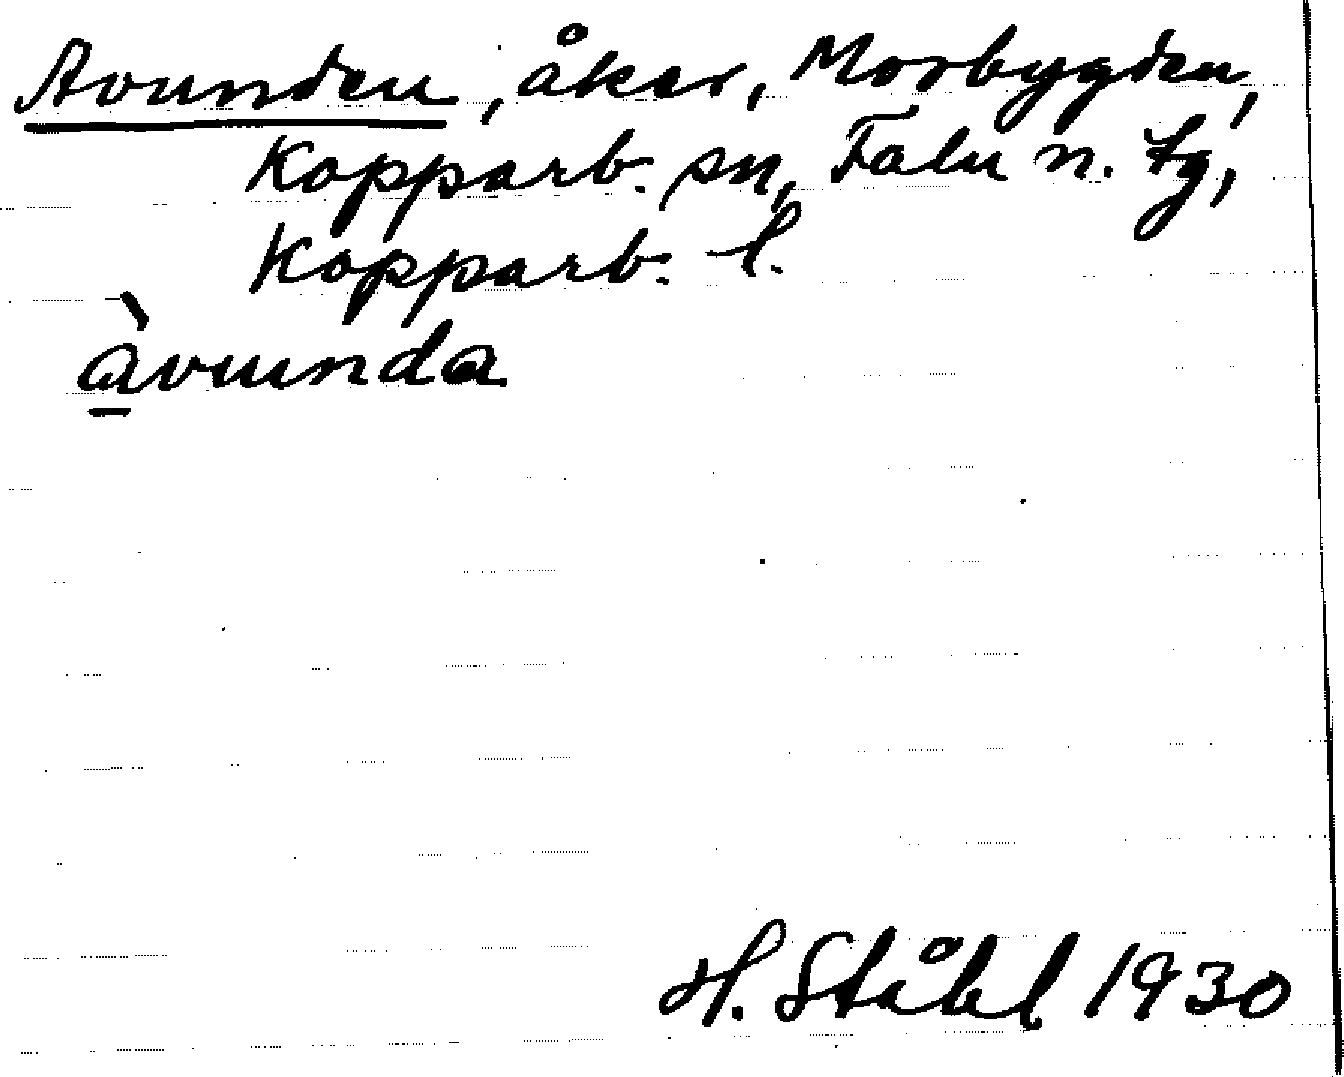 Avunden, åker, Morbygden,
Kopparb. sn, Falu n. tg,
Kopparb. l.
àvunda
H. Ståhl 1930